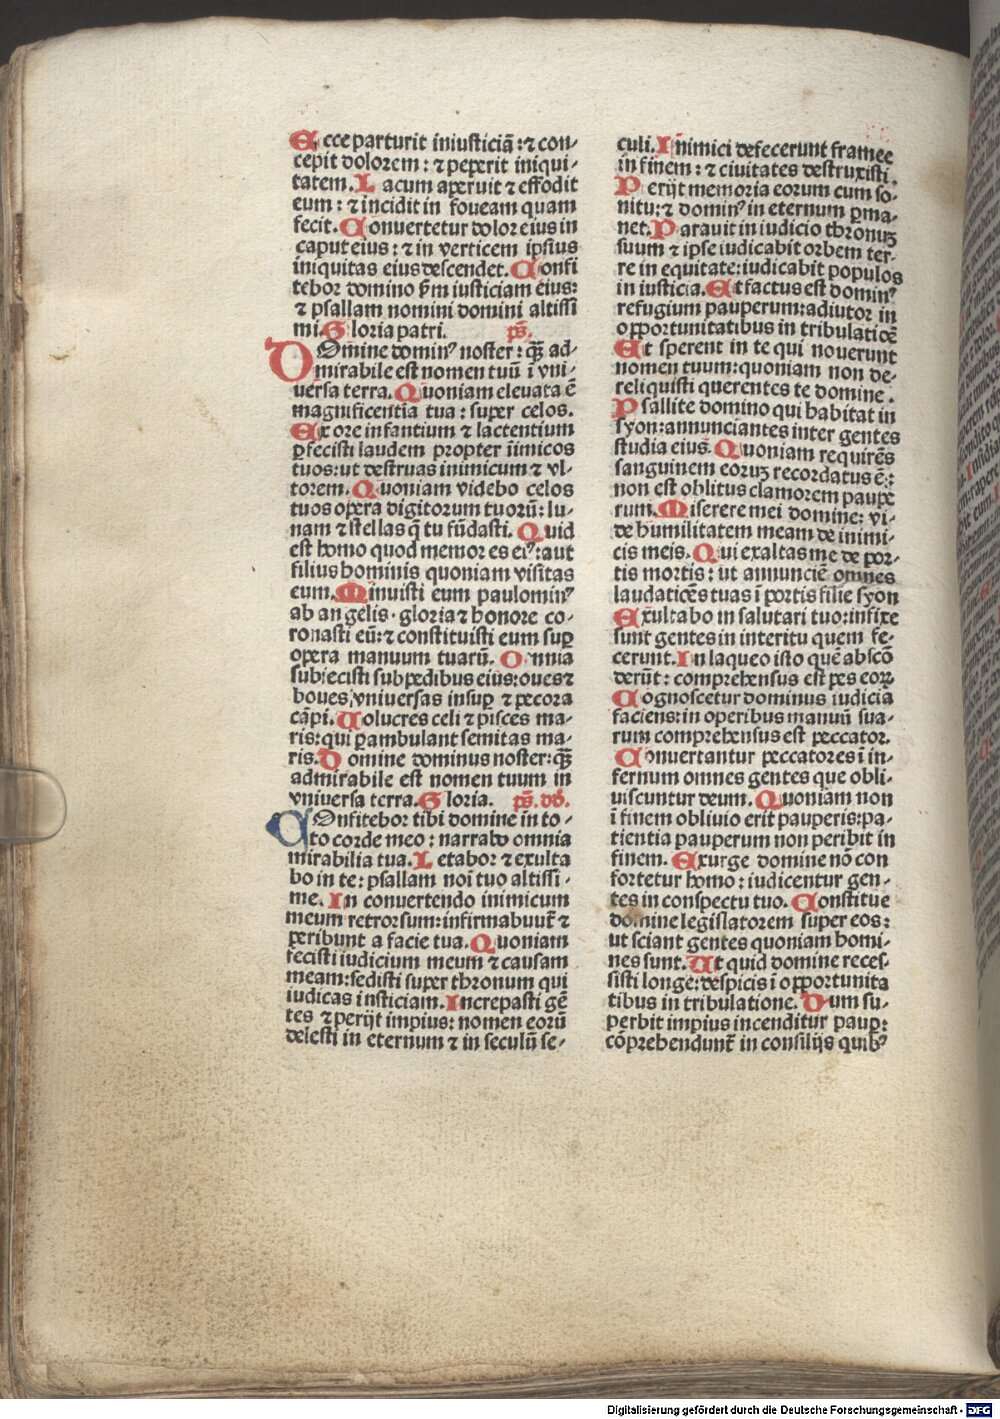 Ecce parturit iniusticiā: ⁊ con-
cepit dolorem: ⁊ peperit iniqui-
tatem. Lacum aperuit ⁊ effodit
eum: ⁊ incidit in foueam quam
fecit. Conuertetur dolor eius in
caput eius: ⁊ in verticem ipsius
iniquitas eius descendet. Confi
tebor domino ẜm iusticiam eius:
⁊ psallam nomini domini altissi
mi. Gloria patri. ps̄.
DOmine domin⁹ noster: q̄ꝫ ad-
mirabile est nomen tuū ī vni-
uersa terra. Quoniam eleuata ē
magnificentia tua: super celos.
Ex ore infantium ⁊ lactentium
ꝑfecisti laudem propter īimicos
tuos: ut destruas inimicum ⁊ vl-
torem. Quoniam videbo celos
tuos opera digitorum tuorū: lu-
nam ⁊ stellas q̄ tu fūdasti. Quid
est homo quod memor es ei⁹: aut
filius hominis quoniam visitas
eum. Minuisti eum paulomin⁹
ab an gelis. gloria ⁊ honore co-
ronasti eū: ⁊ constituisti eum suꝑ
opera manuum tuarū. Omnia
subiecisti sub pedibus eius: oues ⁊
boues, vniuersas insuꝑ ⁊ pecora
cāpi. Uolucres celi ⁊ pisces ma-
ris: qui ꝑambulant semitas ma-
ris. Domine dominus noster: q̄ꝫ
admirabile est nomen tuum in
vniuersa terra. Gloria. ps̄. dd̄.
COnfitebor tibi domine in to-
to corde meo: narrabo omnia
mirabilia tua. Letabor ⁊ exulta
bo in te: psallam noī tuo altissi-
me. In conuertendo inimicum
meum retrorsum: infirmabunt̄ ⁊
peribunt a facie tua. Quoniam
fecisti iudicium meum ⁊ causam
meam: sedisti super thronum qui
iudicas insticiam. Increpasti gē
tes ⁊ perijt impius: nomen eorū
delesti in eternum ⁊ in seculū se-
culi. Inimici defecerunt framee
in finem: ⁊ ciuitates destruxisti.
Perijt memoria eorum cum so-
nitu: ⁊ domin⁹ in eternum ꝑma-
net. Parauit in iudicio thronuꝫ
suum ⁊ ipse iudicabit orbem ter-
re in equitate: iudicabit populos
in iusticia. Et factus est domin⁹
refugium pauperum: adiutor in
opportunitatibus in tribulatiōe
Et sperent in te qui nouerunt
nomen tuum: quoniam non de-
reliquisti querentes te domine.
Psallite domino qui habitat in
syon: annunciantes inter gentes
studia eius. Quoniam requirēs
sanguinem eoruꝫ recordatus ē:
non est oblitus clamorem paupe
rum. Miserere mei domine: vi-
de humilitatem meam de inimi-
cis meis. Qui exaltas me de por-
tis mortis: ut annunciē omnes
laudatiōes tuas ī portis filie syon
Exultabo in salutari tuo: infixe
sunt gentes in interitu quem fe-
cerunt. In laqueo isto quē abscō
derūt: comprehensus est pes eoꝝ
Cognoscetur dominus iudicia
faciens: in operibus manuū sua-
rum comprehensus est peccator.
Conuertantur peccatores ī in-
fernum omnes gentes que obli-
uiscuntur deum. Quoniam non
ī finem obliuio erit pauperis: pa-
tientia pauperum non peribit in
finem. Exurge domine nō con
fortetur homo: iudicentur gen-
tes in conspectu tuo. Constitue
domine legislatorem super eos:
ut sciant gentes quoniam homi-
nes sunt. Ut quid domine reces-
sisti longe: despicis ī opportunita
tibus in tribulatione. Dum su-
perbit impius incenditur pauꝑ:
cōprehendunt̄ in consilijs quib⁹
Digitalisierung gefördert durch die Deutsche Forschungsgemeinschaft - DFG